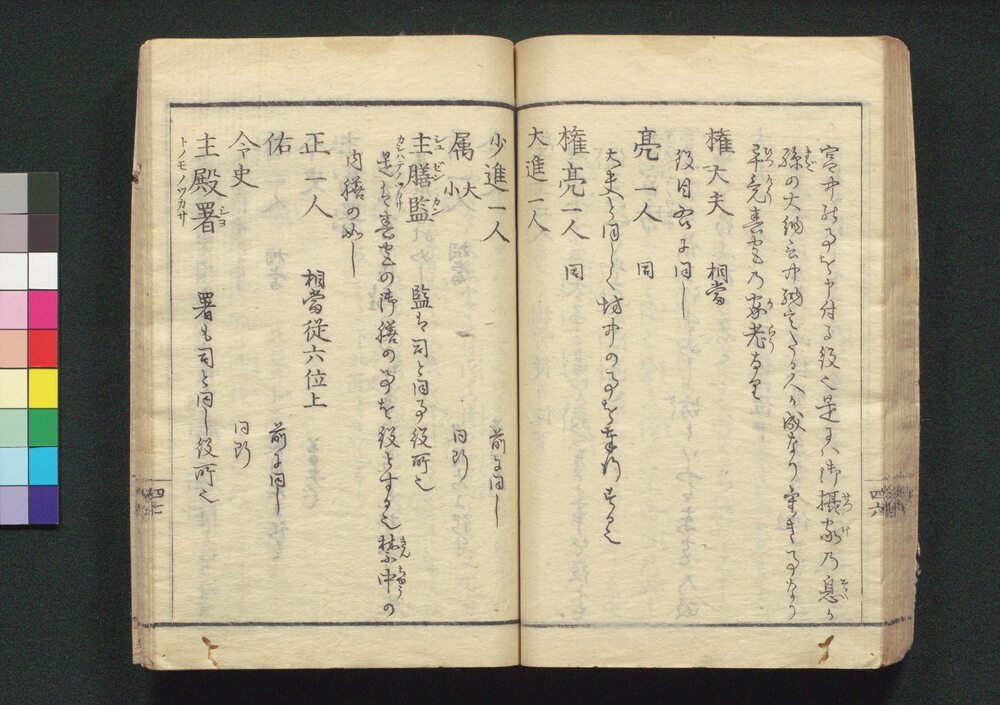 宮中の事を申付る役也是には御摂家の息か
孫の大納言中納言たる人か成なり重き事なり
畢竟春宮の家老なり
権大夫 相當
役目右に同し
亮一人 同
大夫と同しく坊中の事を奉行する也
権亮一人 同
大進一人
少進一人 前に同し
属 大小 同断
主膳監 監は司と同事役所也
是は春宮の御膳の事を役とする也禁中の
内膳の如し
正一人 相當従六位上
佑 前に同し
令史 同断
主殿署 署も司と同し役所也
四六
四七